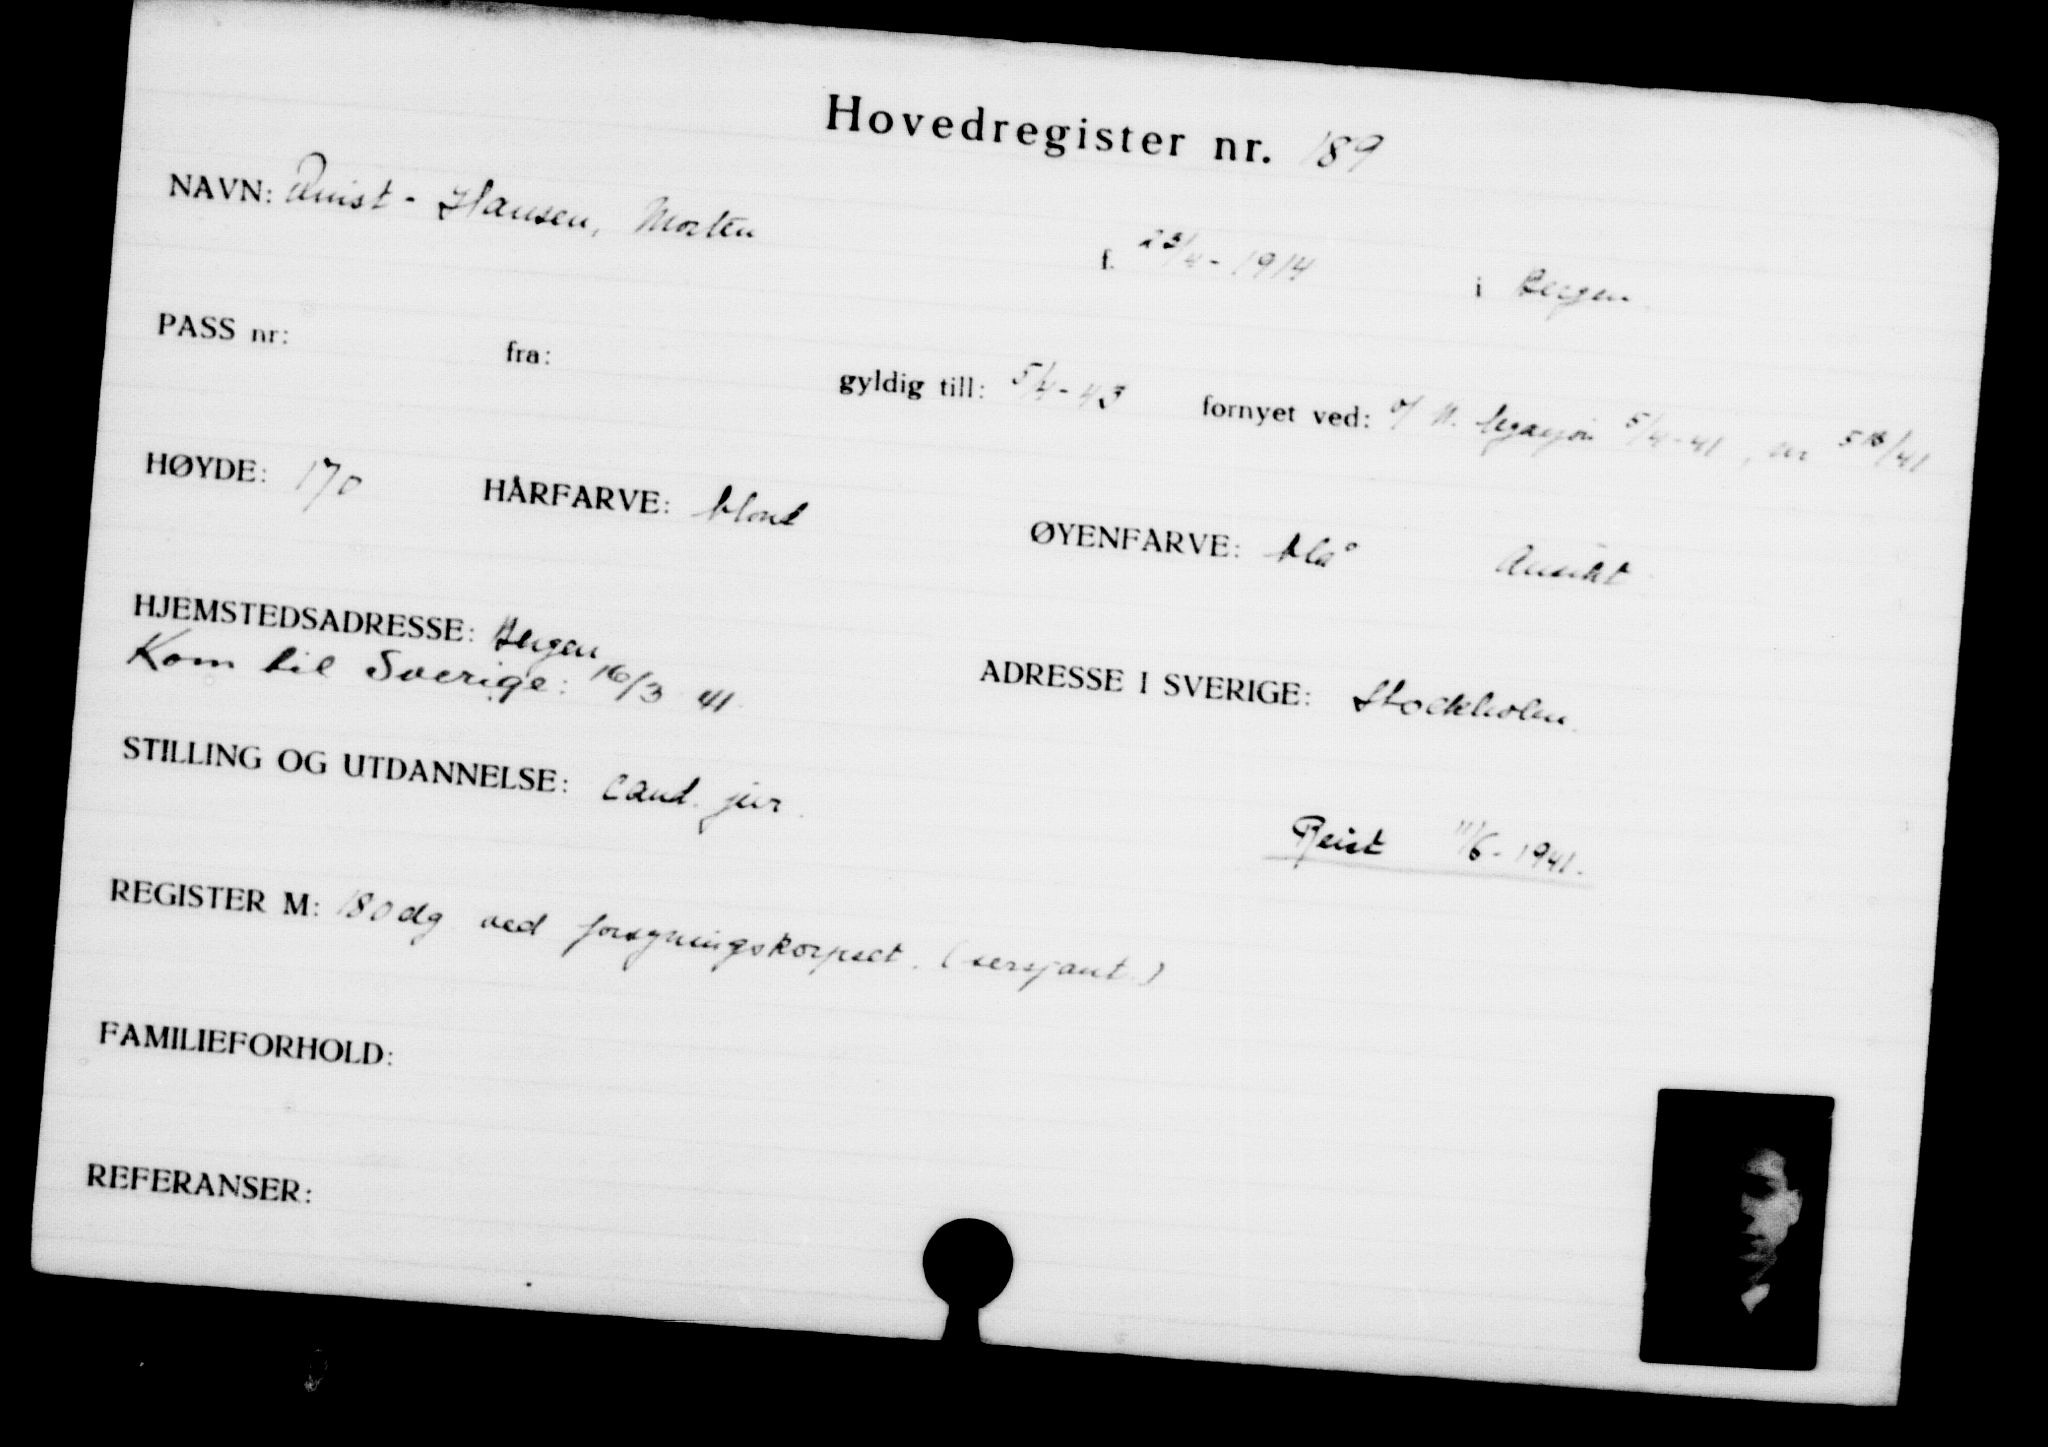 Hovedregister nr. 189
NAVN: Quist - Hansen, Morten f. 23/4 - 1914 i Bergen
PASS nr: fra: gyldig till: 5/4 - 43 fornyet ved: N. legasjon 5/4 - 41, nr
HØYDE: 170 HÅRFARVE: blond ØYENFARVE: blå Ansikt
HJEMSTEDSADRESSE: Bergen ADRESSE I SVERIGE: Stockholm.
Kom til Sverige: 16/3 41.
STILLING OG UTDANNELSE: cand. jur.
Reist 11/6 - 1941.
REGISTER M: 180 dg ved forsyningskorpset. (sersjant.)
FAMILIEFORHOLD:
REFERANSER: